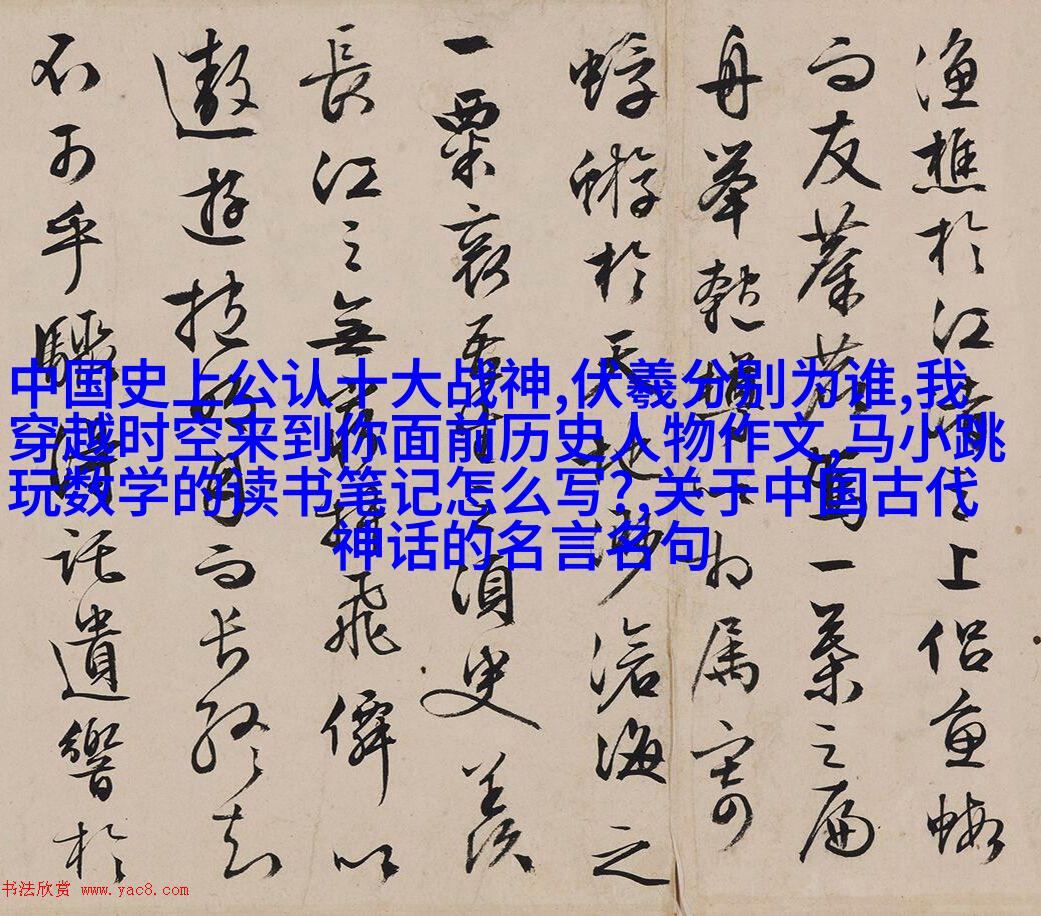 中国史上公认十大战神,伏羲分别为谁,我
穿越时空来到你面前历史人物作文,马小跳
玩数学的读书笔记怎么写?,关于中国古代
神话的名言名句
漁樵於江渚之上侣魚蝦
而友麋鹿駕一葉之扁
舟舉匏樽以相属寄
蜉蝣於天地渺滄海之
一粟哀吾生之須臾羨
長江之無窮挾飛僊以
遨遊抱明月而長終知
不可乎驟得託遺響於
书法欣赏 www.yac8.com